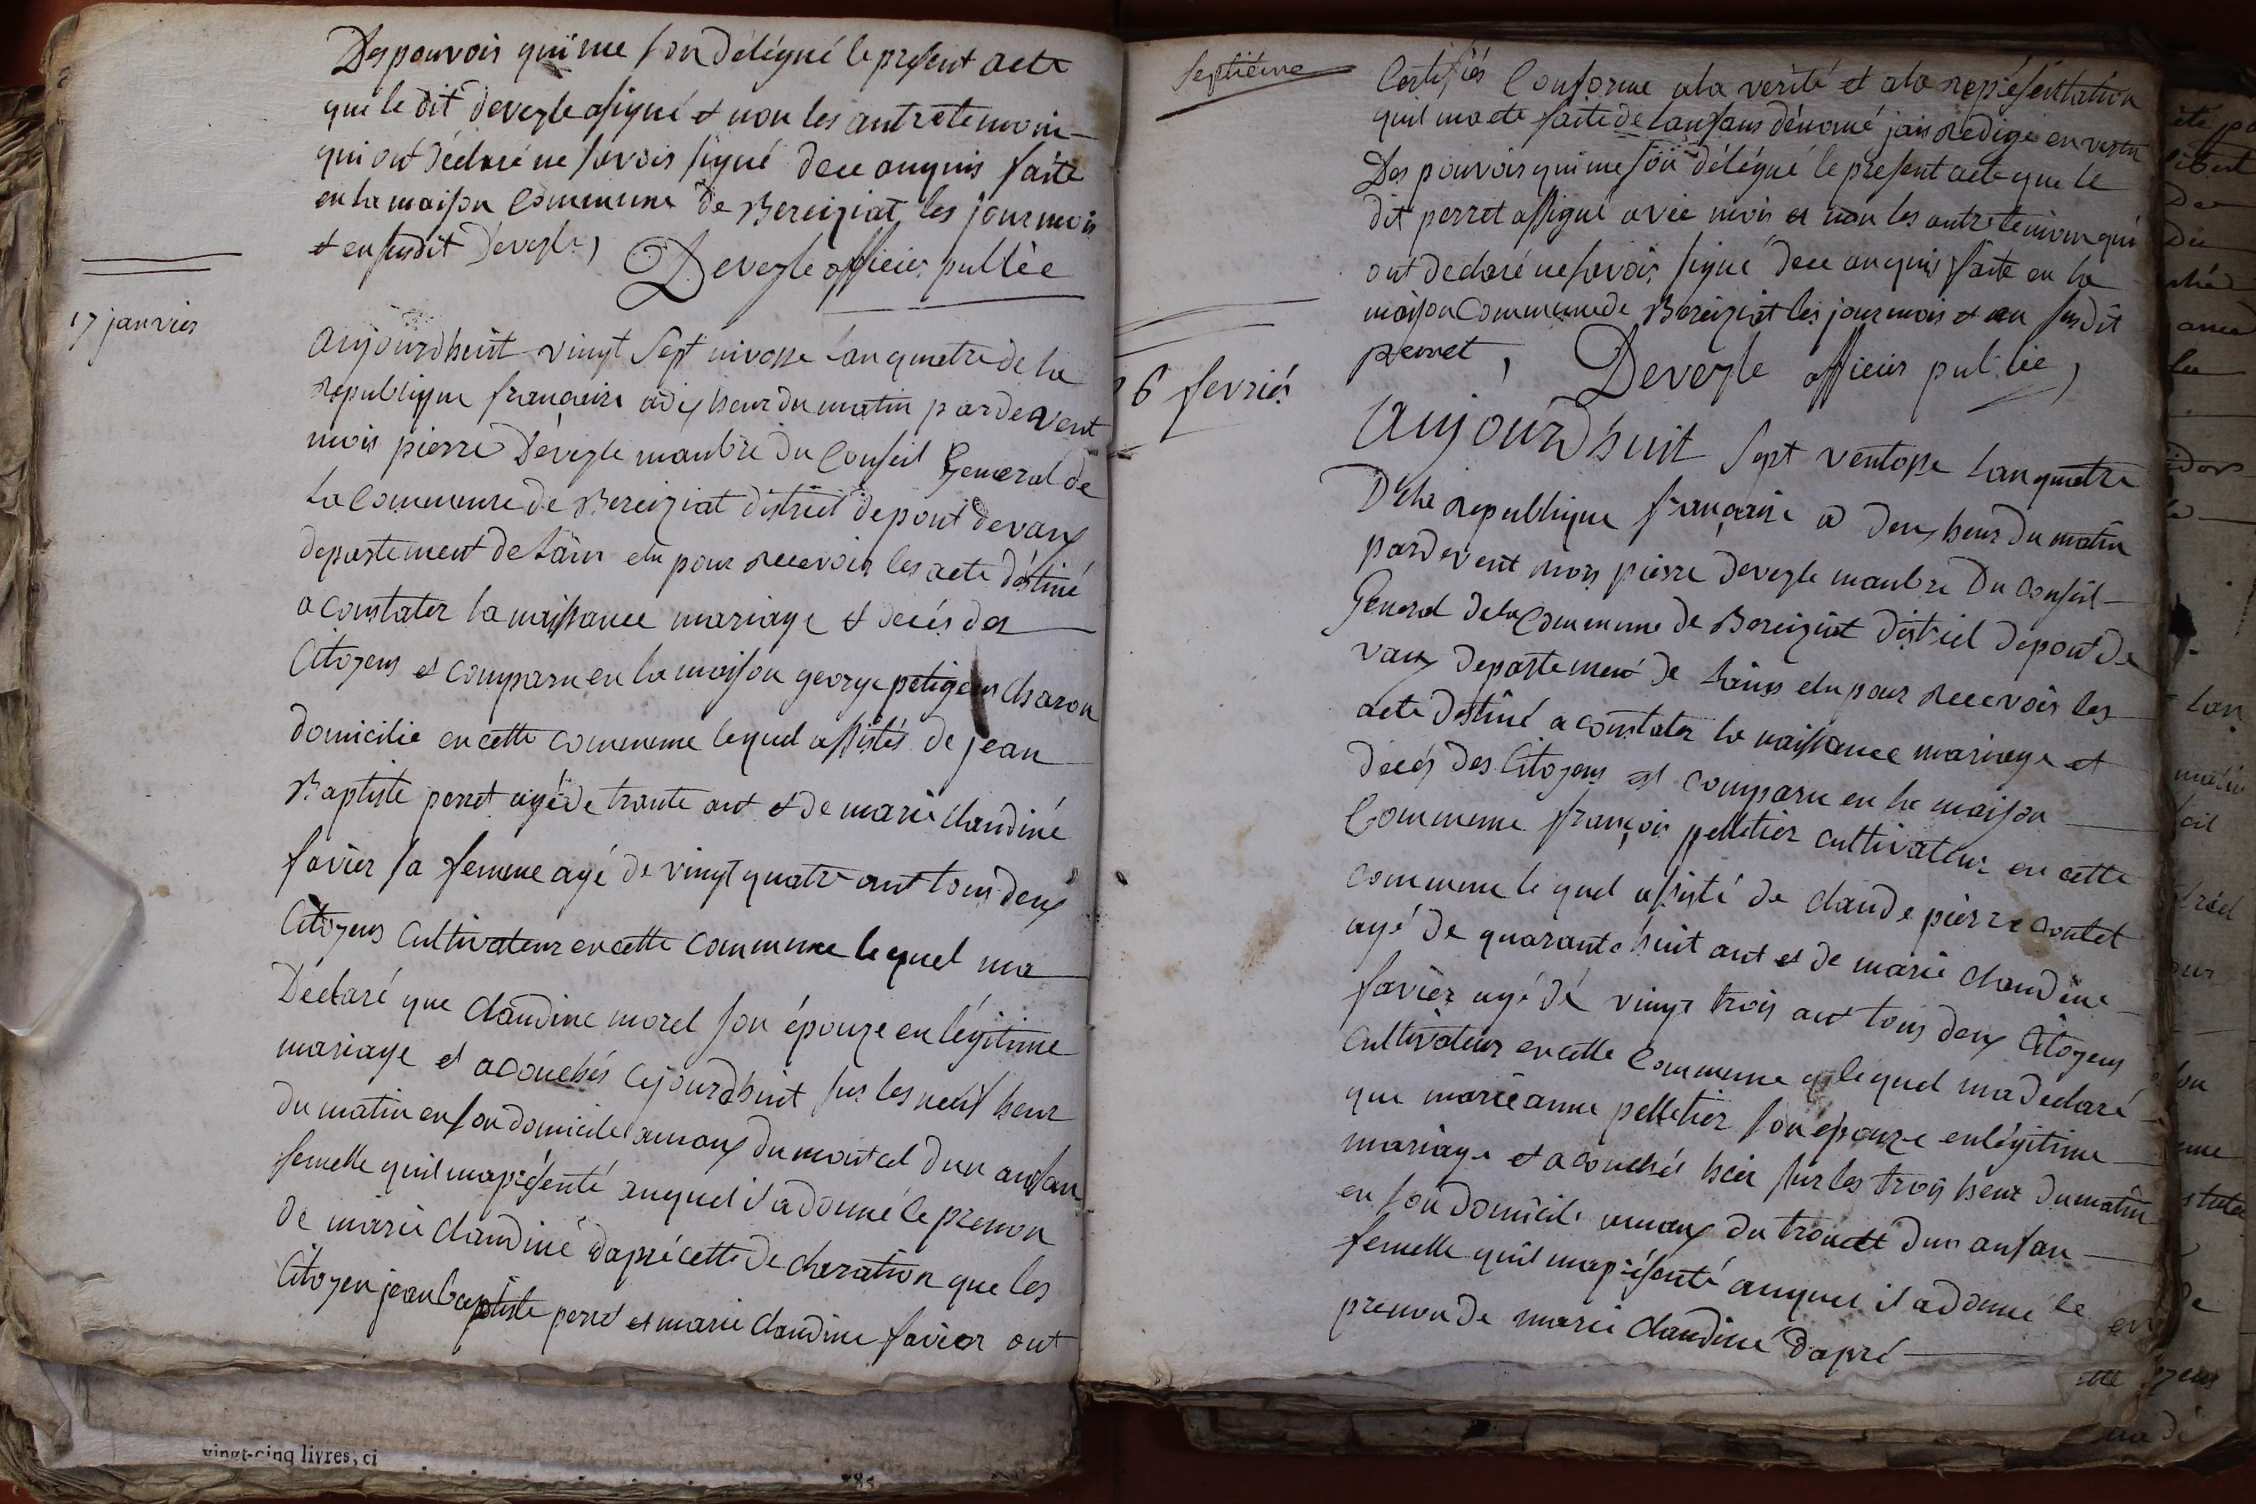 Des pouvoir qui me son délégué le present acte
que le dit devezle asigné et non les autre temoin
qui ont déclaré ne savoir signé dece anquis faite
en la maison commune de Bereiziat les jour mois
et en susdit Devezle,
Devezle officier publie
17 janvier
aujourdhuit vingt sept nivosse lan quatre de la
republique francaise a dix heur du matin pardevent
mois pierre Devezle manbre du Conseil General de
la commune de Bereiziat district de pont devaux
departement de Lain elu pour recevoir les acte destiné
a constater la naissance mariage et decés des
Citoyens et comparu en la maison george petigean charon
domicilie en cette commune lequel assistés de jean
Baptiste perret agé de trante ant et de marie claudine
favier sa femme agé de vingt quatre ant tous deux
Citoyens cultivateur en cette commune lequel ma
Déclaré que claudine morel son épouze en légitime
mariage et acouchés cejourdhuit sur les neuf heur
du matin en son domicile amaux du montcel dun ansan
femelle quil maprésenté auquel il a donné le prenon
de marie claudine dapré cette de claration que les
Citoyen jean baptiste perret et marie claudine favier ont
septième
Certifiés Conforme ala verité et ala représentation
quil ma ete faite de lansans dénomé jais redigé en vertu
Des pouvoir qui me son délégué le present acte que le
dit perret assigné avec mois et non les autre temoin qui
ont declaré ne savoir signé dece anquis faite en la
maison commune de Bereiziat les jour mois et an susdit
perret, Devezle officier publie,
26 fevrier
Aujourdhuit sept ventosse lan quatre
De la republique française a deux heur du matin
pardevent mois pierre devezle manbre Du Conseil
General dela commune de Bereiziat district depont de
vaux departement de Lain elu pour recevoir les
acte destiné a constater la naissance mariage et
decés des Citoyens est comparu en la maison
Commune françois pelletier cultivateur en cette
commune le quel asisté de claude pierre coulet
agé de quarante huit ant et de marie claudine
favier agé dé vingt trois ant tous deux Citoyens
cultivateur en cette Commune lequel ma declaré
que marie anne pelletier son épouze en légitime
mariage et acouchés hier sur les trois heur du matin
en son domicile amaux du trouett dun ansan
femelle quil maprésenté auquel il a donné le
prenon de marie claudine daprè
vingt-cinq livres, ci